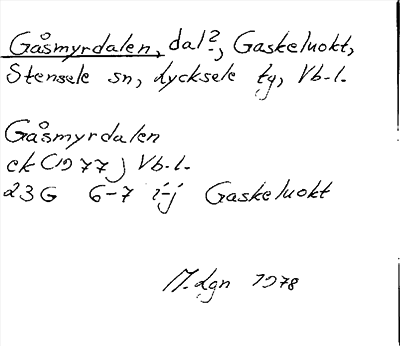 Gåsmyrdalen, dal?, Gaskeluokt,
Stensele sn, Lycksele ty, Vb-l.
Gåsmyrdalen
ek (1977) Vb-l.
23G 6-7 i-j Gaskeluokt
M.Lgn 1978